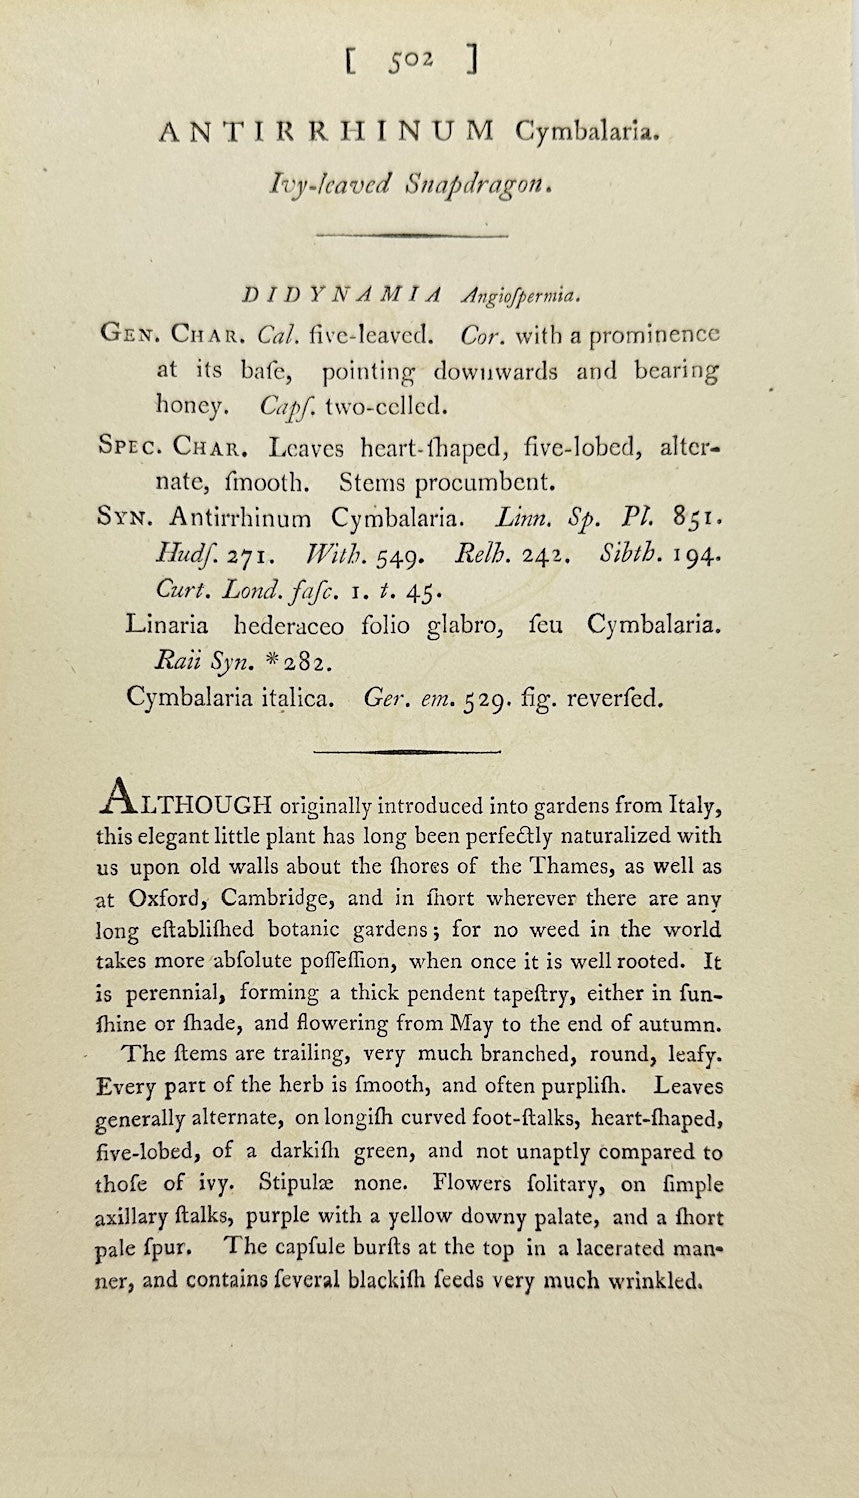 [ 502 ]
ANTIRRHINUM Cymbalaria.
Ivy-leaved Snapdragon.
DIDYNAMIA Angioſpermia.
GEN. CHAR. Cal. five-leaved. Cor. with a prominence
at its baſe, pointing downwards and bearing
honey. Capſ. two-celled.
SPEC. CHAR. Leaves heart-ſhaped, five-lobed, alter-
nate, ſmooth. Stems procumbent.
SYN. Antirrhinum Cymbalaria. Linn. Sp. Pl. 851.
Hudſ. 271. With. 549. Relh. 242. Sibth. 194.
Curt. Lond. faſc. 1. t. 45.
Linaria hederaceo folio glabro, ſeu Cymbalaria.
Raii Syn. *282.
Cymbalaria italica. Ger. em. 529. fig. reverſed.
ALTHOUGH originally introduced into gardens from Italy,
this elegant little plant has long been perfectly naturalized with
us upon old walls about the ſhores of the Thames, as well as
at Oxford, Cambridge, and in ſhort wherever there are any
long eſtabliſhed botanic gardens; for no weed in the world
takes more abſolute poſſeſſion, when once it is well rooted. It
is perennial, forming a thick pendent tapeſtry, either in ſun-
ſhine or ſhade, and flowering from May to the end of autumn.
The ſtems are trailing, very much branched, round, leafy.
Every part of the herb is ſmooth, and often purpliſh. Leaves
generally alternate, on longiſh curved foot-ſtalks, heart-ſhaped,
five-lobed, of a darkiſh green, and not unaptly compared to
thoſe of ivy. Stipulæ none. Flowers ſolitary, on ſimple
axillary ſtalks, purple with a yellow downy palate, and a ſhort
pale ſpur. The capſule burſts at the top in a lacerated man-
ner, and contains ſeveral blackiſh ſeeds very much wrinkled.